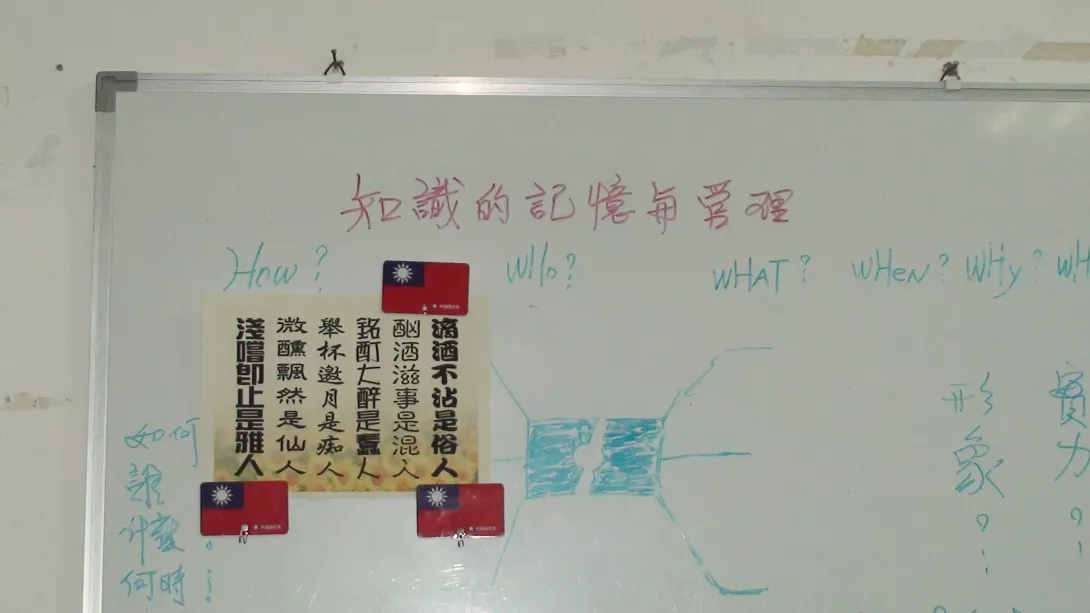 知識的記憶與管理
How?
WHo?
WHAT?
WHeN?
WHy?
WH
滴酒不沾是俗人
酗酒滋事是混人
銘酊大醉是蠢人
舉杯邀月是痴人
微醺飄然是仙人
淺嚐即止是雅人
如何
誰
什麼
何時
形象
實力